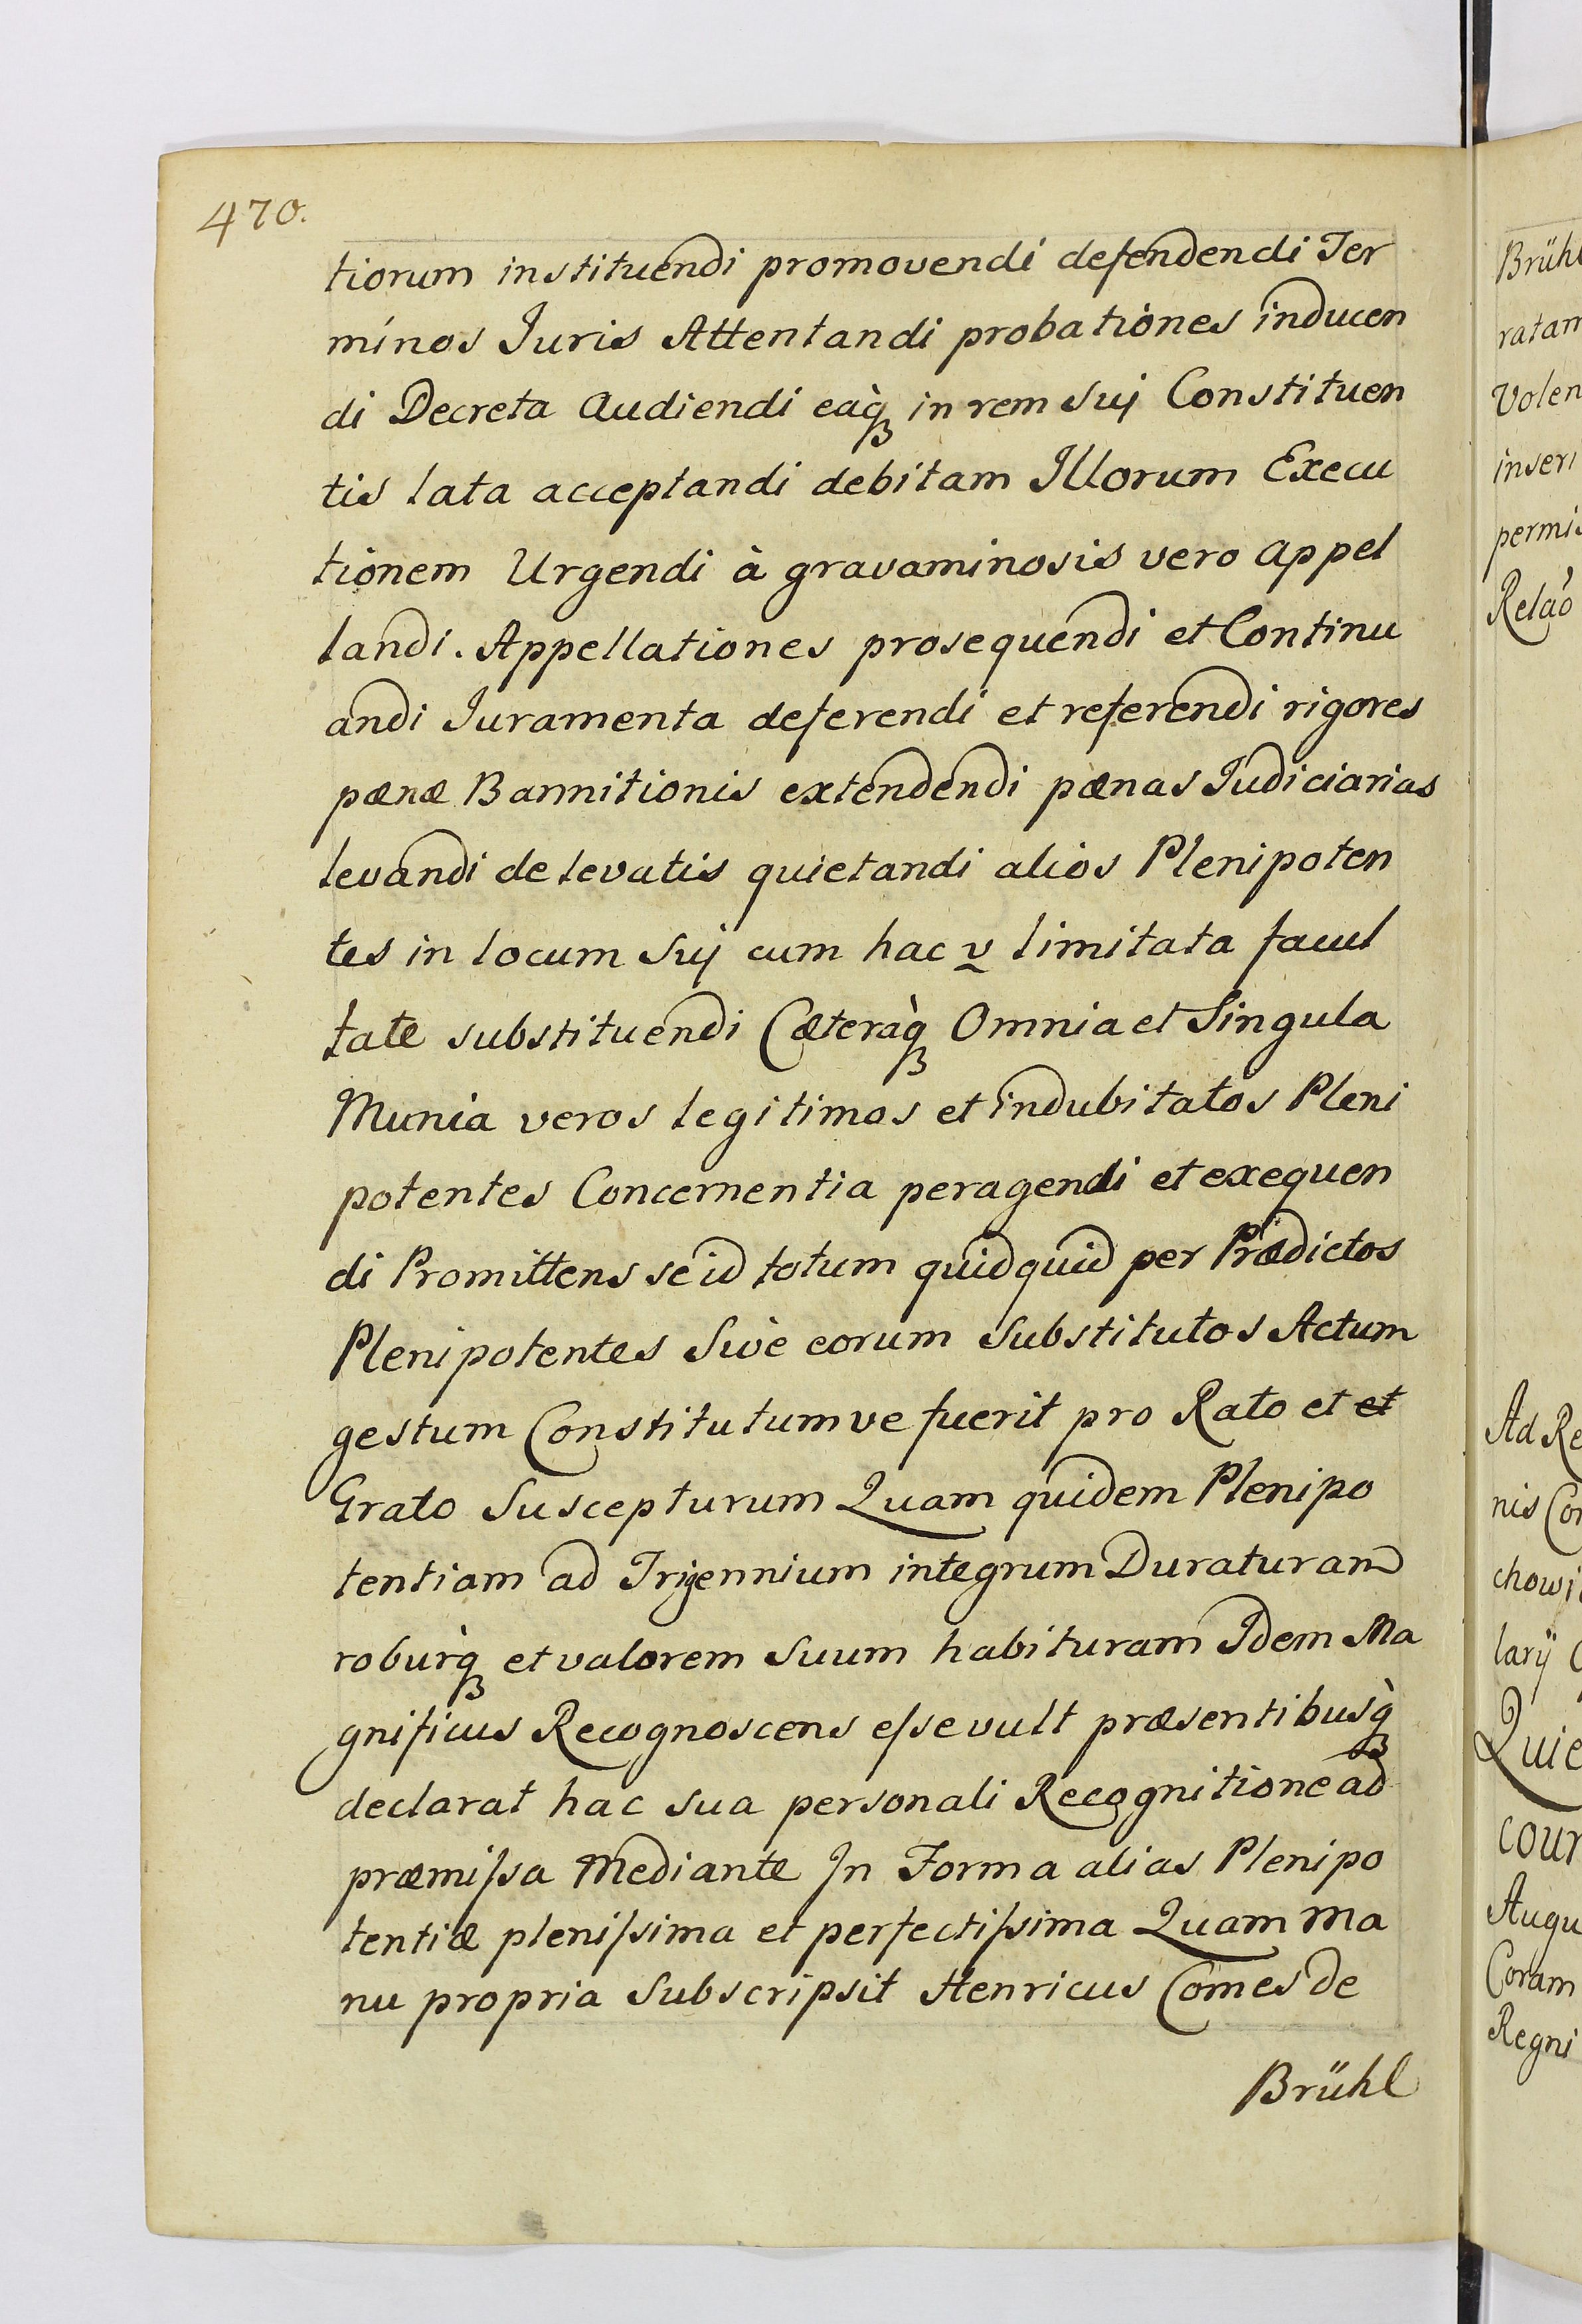 470.
tiorum instituendi promovendi defendendi Ter
minos Juris Attentandi probationes inducen
di Decreta Audiendi eaq̀ꝫ in rem suj Constituen
tis lata acceptandi debitam Illorum Execu
tionem Urgendi à gravaminosis vero appel
landi. Appellationes prosequendi et Continu
andi Juramenta deferendi et referendi rigores
pænæ Bannitionis extendendi pænas Judiciarias
levandi de levatis quietandi alios Plenipoten
tes in locum suj cum hac v̰ limitata facul
tate substituendi Cæteraq̀ꝫ Omnia et Singula
Munia veros legitimos et indubitatos Pleni
potentes Concernentia peragendi et exequen
di Promittens se id totum quidquid per Prædictos
Plenipotentes Sivè eorum Substitutos Actum
gestum Constitutumve fuerit pro Rato et et
Grato Suscepturum Quam quidem Plenipo
tentiam ad Trijennium integrum Duraturam
roburq̀ꝫ et valorem Suum habituram Idem Ma
gnificus Recognoscens eſse vult præsentibusq̀ꝫ
declarat hac sua personali Recognitione ad
præmiſsa Mediante In Forma alias Plenipo
tentiæ pleniſsima et perfectiſsima Quam ma
nu propria Subscripsit Henricus Comes de
Brühl
Brühl
ratam
Volen
inseri
permis
Relaõ
Ad Re
nis Con
chowi
larÿ
Quie
cour
Augu
Coram
Regni